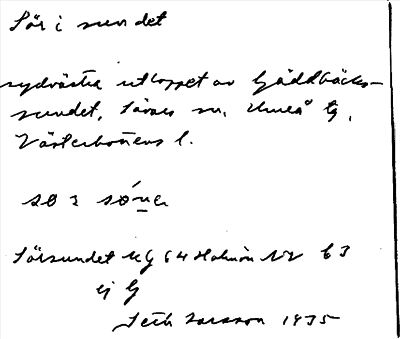 Sör i sundet
sydvästra utloppet av Gäddbäcks-
sundet, Sävars sn, Umeå tg,
Västerbottens l.
Sörsundet kg 64 Holmön NV 63
ej lj
Seth Larsson 1935